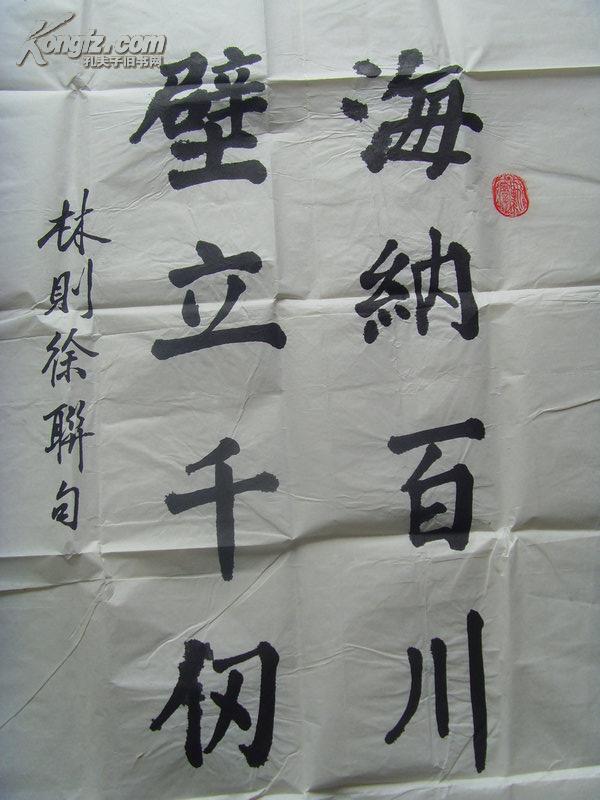 海納百川
壁立千仞
林則徐聯句
Kongfz.com
孔夫子旧书网